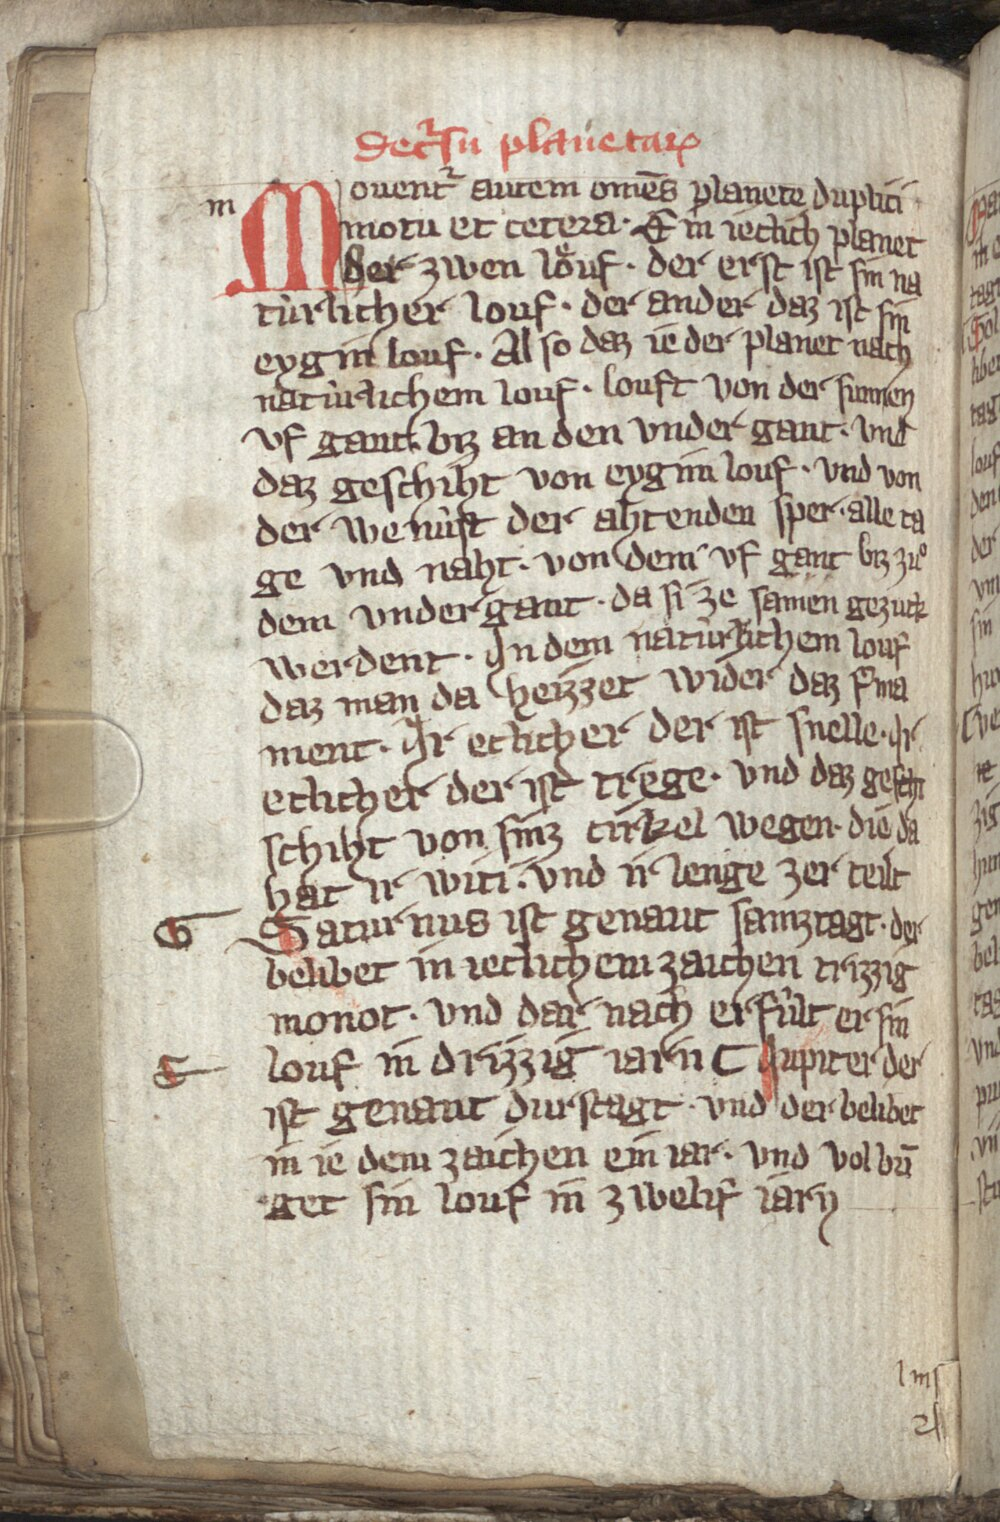 Dec̉su planetaꝝ
m
Mouent̉ autem om̄es planete duplici
motu et cetera · E in ietlich planet
der zwen loͤuf · der erst ist sin na
tùrlicher louf · der ander daz ist sin
eygin louf · Also daz ieder planet nach
natùrlichem louf · louft von der sunnen
vf gant · biz an den vnder gant · vnd
daz geschiht von eygim louf · vnd von
der we nùft der ahtenden sper · alle ta
ge vnd naht · von dem vf gant biz zuͦ
dem vnder gant · da si ze samen gezuck
werdent · In dem natùrlichem louf
daz man da heizzet wider daz firma
ment · Ir etlicher der ist snelle · Ir
etlicher der ist trege · vnd daz geschi
schiht von sinz cirkel wegen · die da
hat ir witi · vnd ir lenge zer teilt
Saturnus ist genant samztagt · der
belibet in ietlichem zaichen trizzig
monot · vnd dar nach erfùlt er sin
louf in drizzig iarn C Jupiter der
ist genant durstagt · vnd der belibet
in ie dem zaichen ein iar · vnd volbrī
get sin louf in zwelif iarn